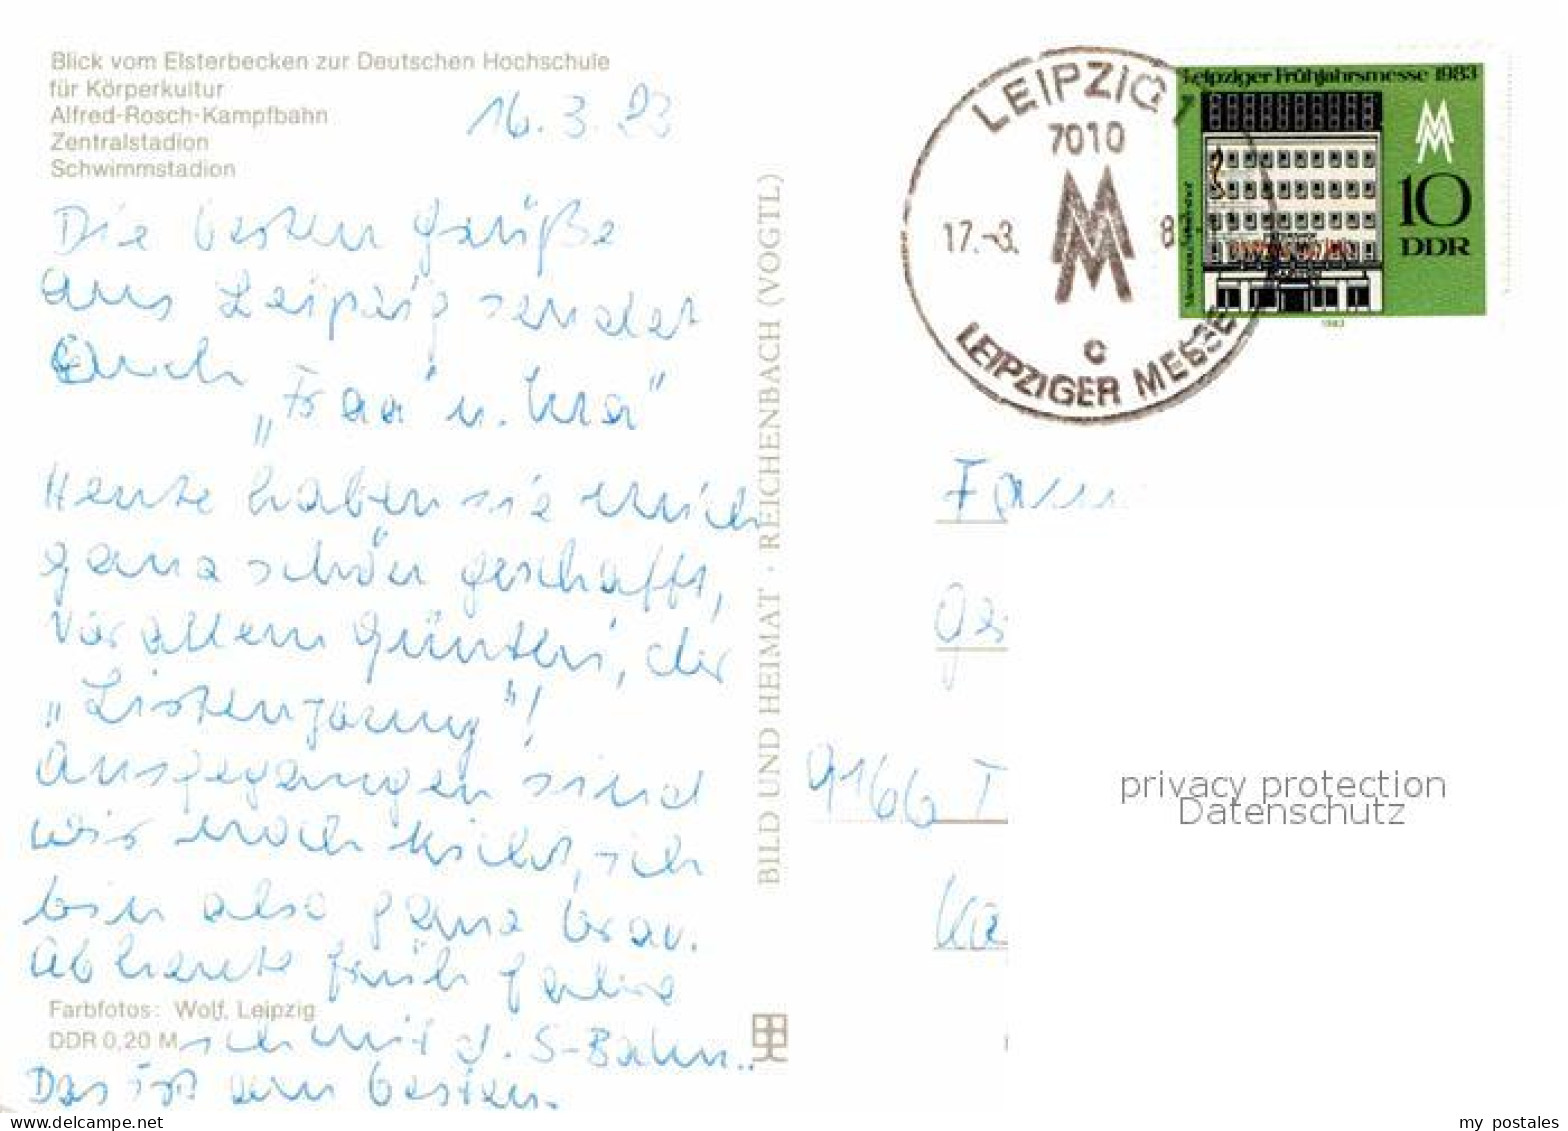 Blick vom Elsterbecken zur Deutschen Hochschule
für Körperkultur
Alfred-Rosch-Kampfbahn
Zentralstadion
Schwimmstadion
16.3.83
Die besten Grüße
aus Leipzig sendet
Euch
„Frau u.
Heute haben sie mich
ganz schön geschafft,
vor allem Günther, der
„Listenjoung"!
Ausgegangen sind
wir noch nicht, ich
bin also ganz brav.
Ab heute früh fahre
ich mit d. S-Bahn..
Das ist am besten.
Farbfotos: Wolf, Leipzig
DDR 0,20 M
BILD UND HEIMAT · REICHENBACH (VOGTL)
LEIPZIG 1
7010
MM
17.-3. 8
c
LEIPZIGER MESSE
Leipziger Frühjahrsmesse 1983
MM
10
DDR
1983
Fam
9166 T
privacy protection
Datenschutz
my postales